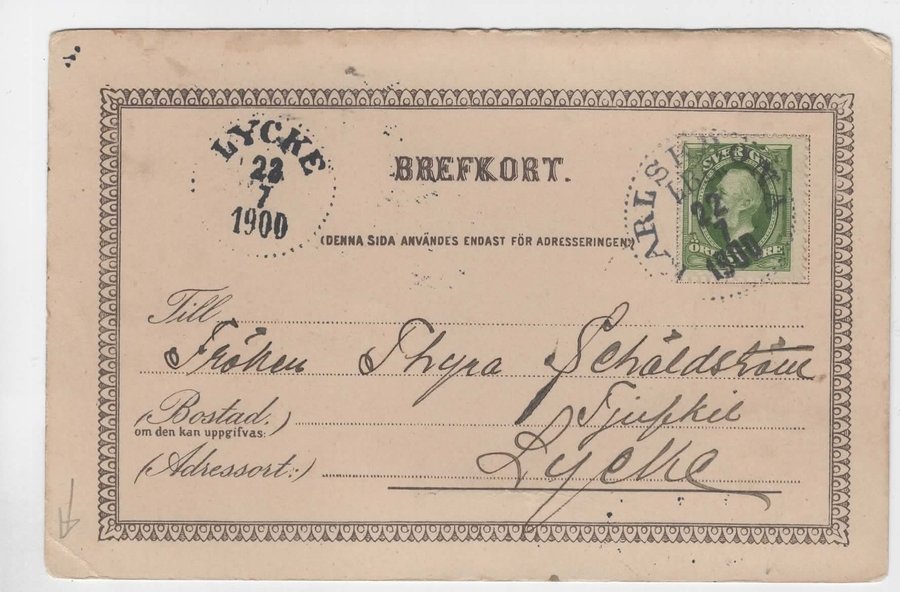 LYCKE
23
7
1900
BREFKORT.
(DENNA SIDA ANVÄNDES ENDAST FÖR ADRESSERINGEN)
KARLSBORG
22
7
1900
Till
Fröken Thyra Schåldström
(Bostad.)
om den kan uppgifvas:
Tjufkil
(Adressort:)
Lycke